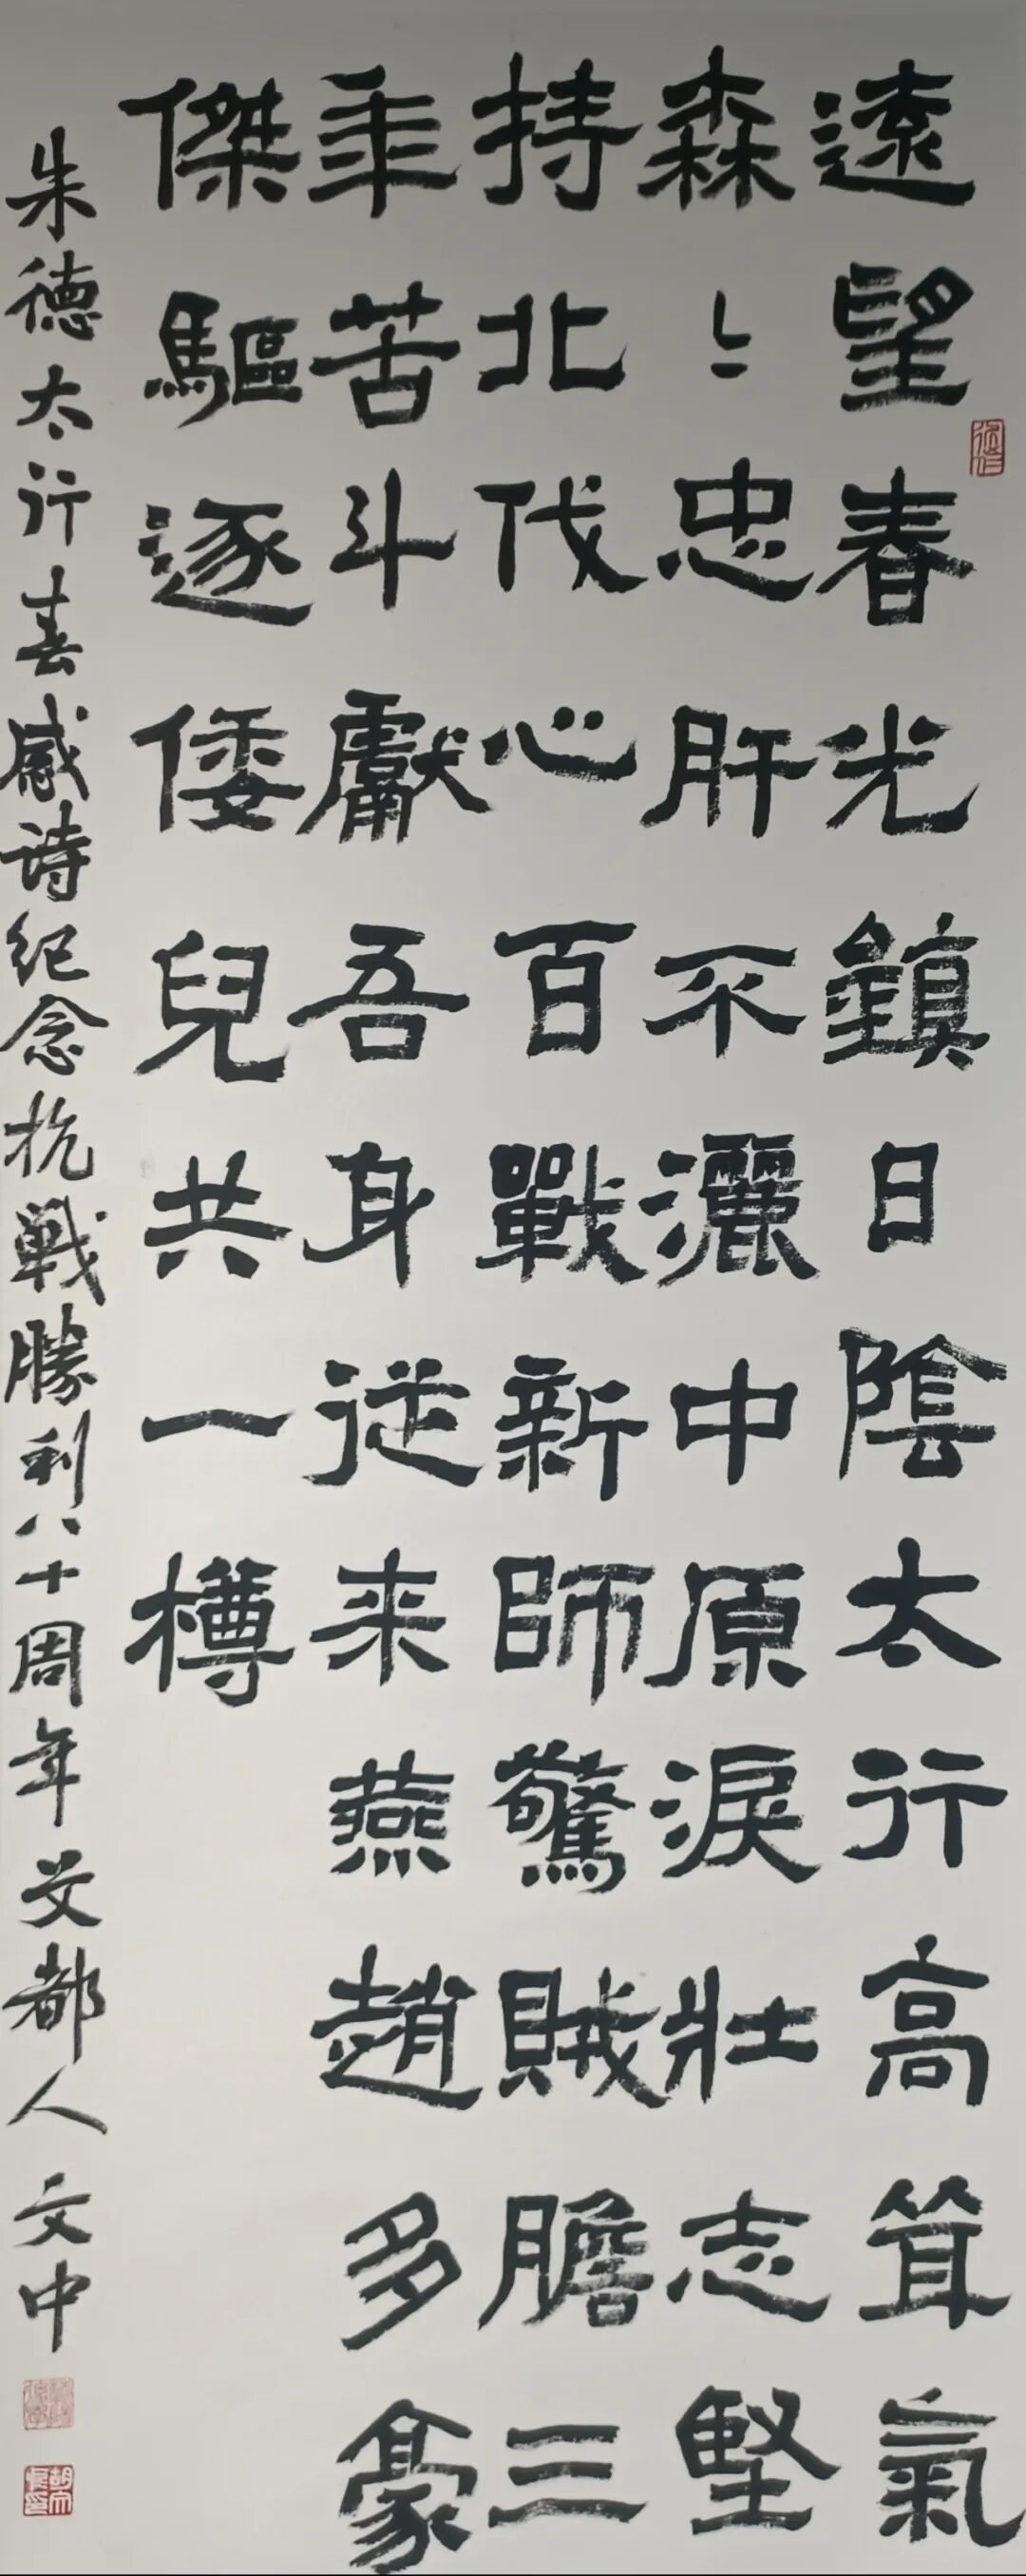 遠望春光鎮日陰太行高耸氣
森〻忠肝不灑中原淚壯志堅
持北伐心百戰新師驚賊膽三
年苦斗獻吾身從来燕趙多豪
傑驅逐倭兒共一樽
朱德太行春感诗纪念抗戦勝利八十周年文都人文中